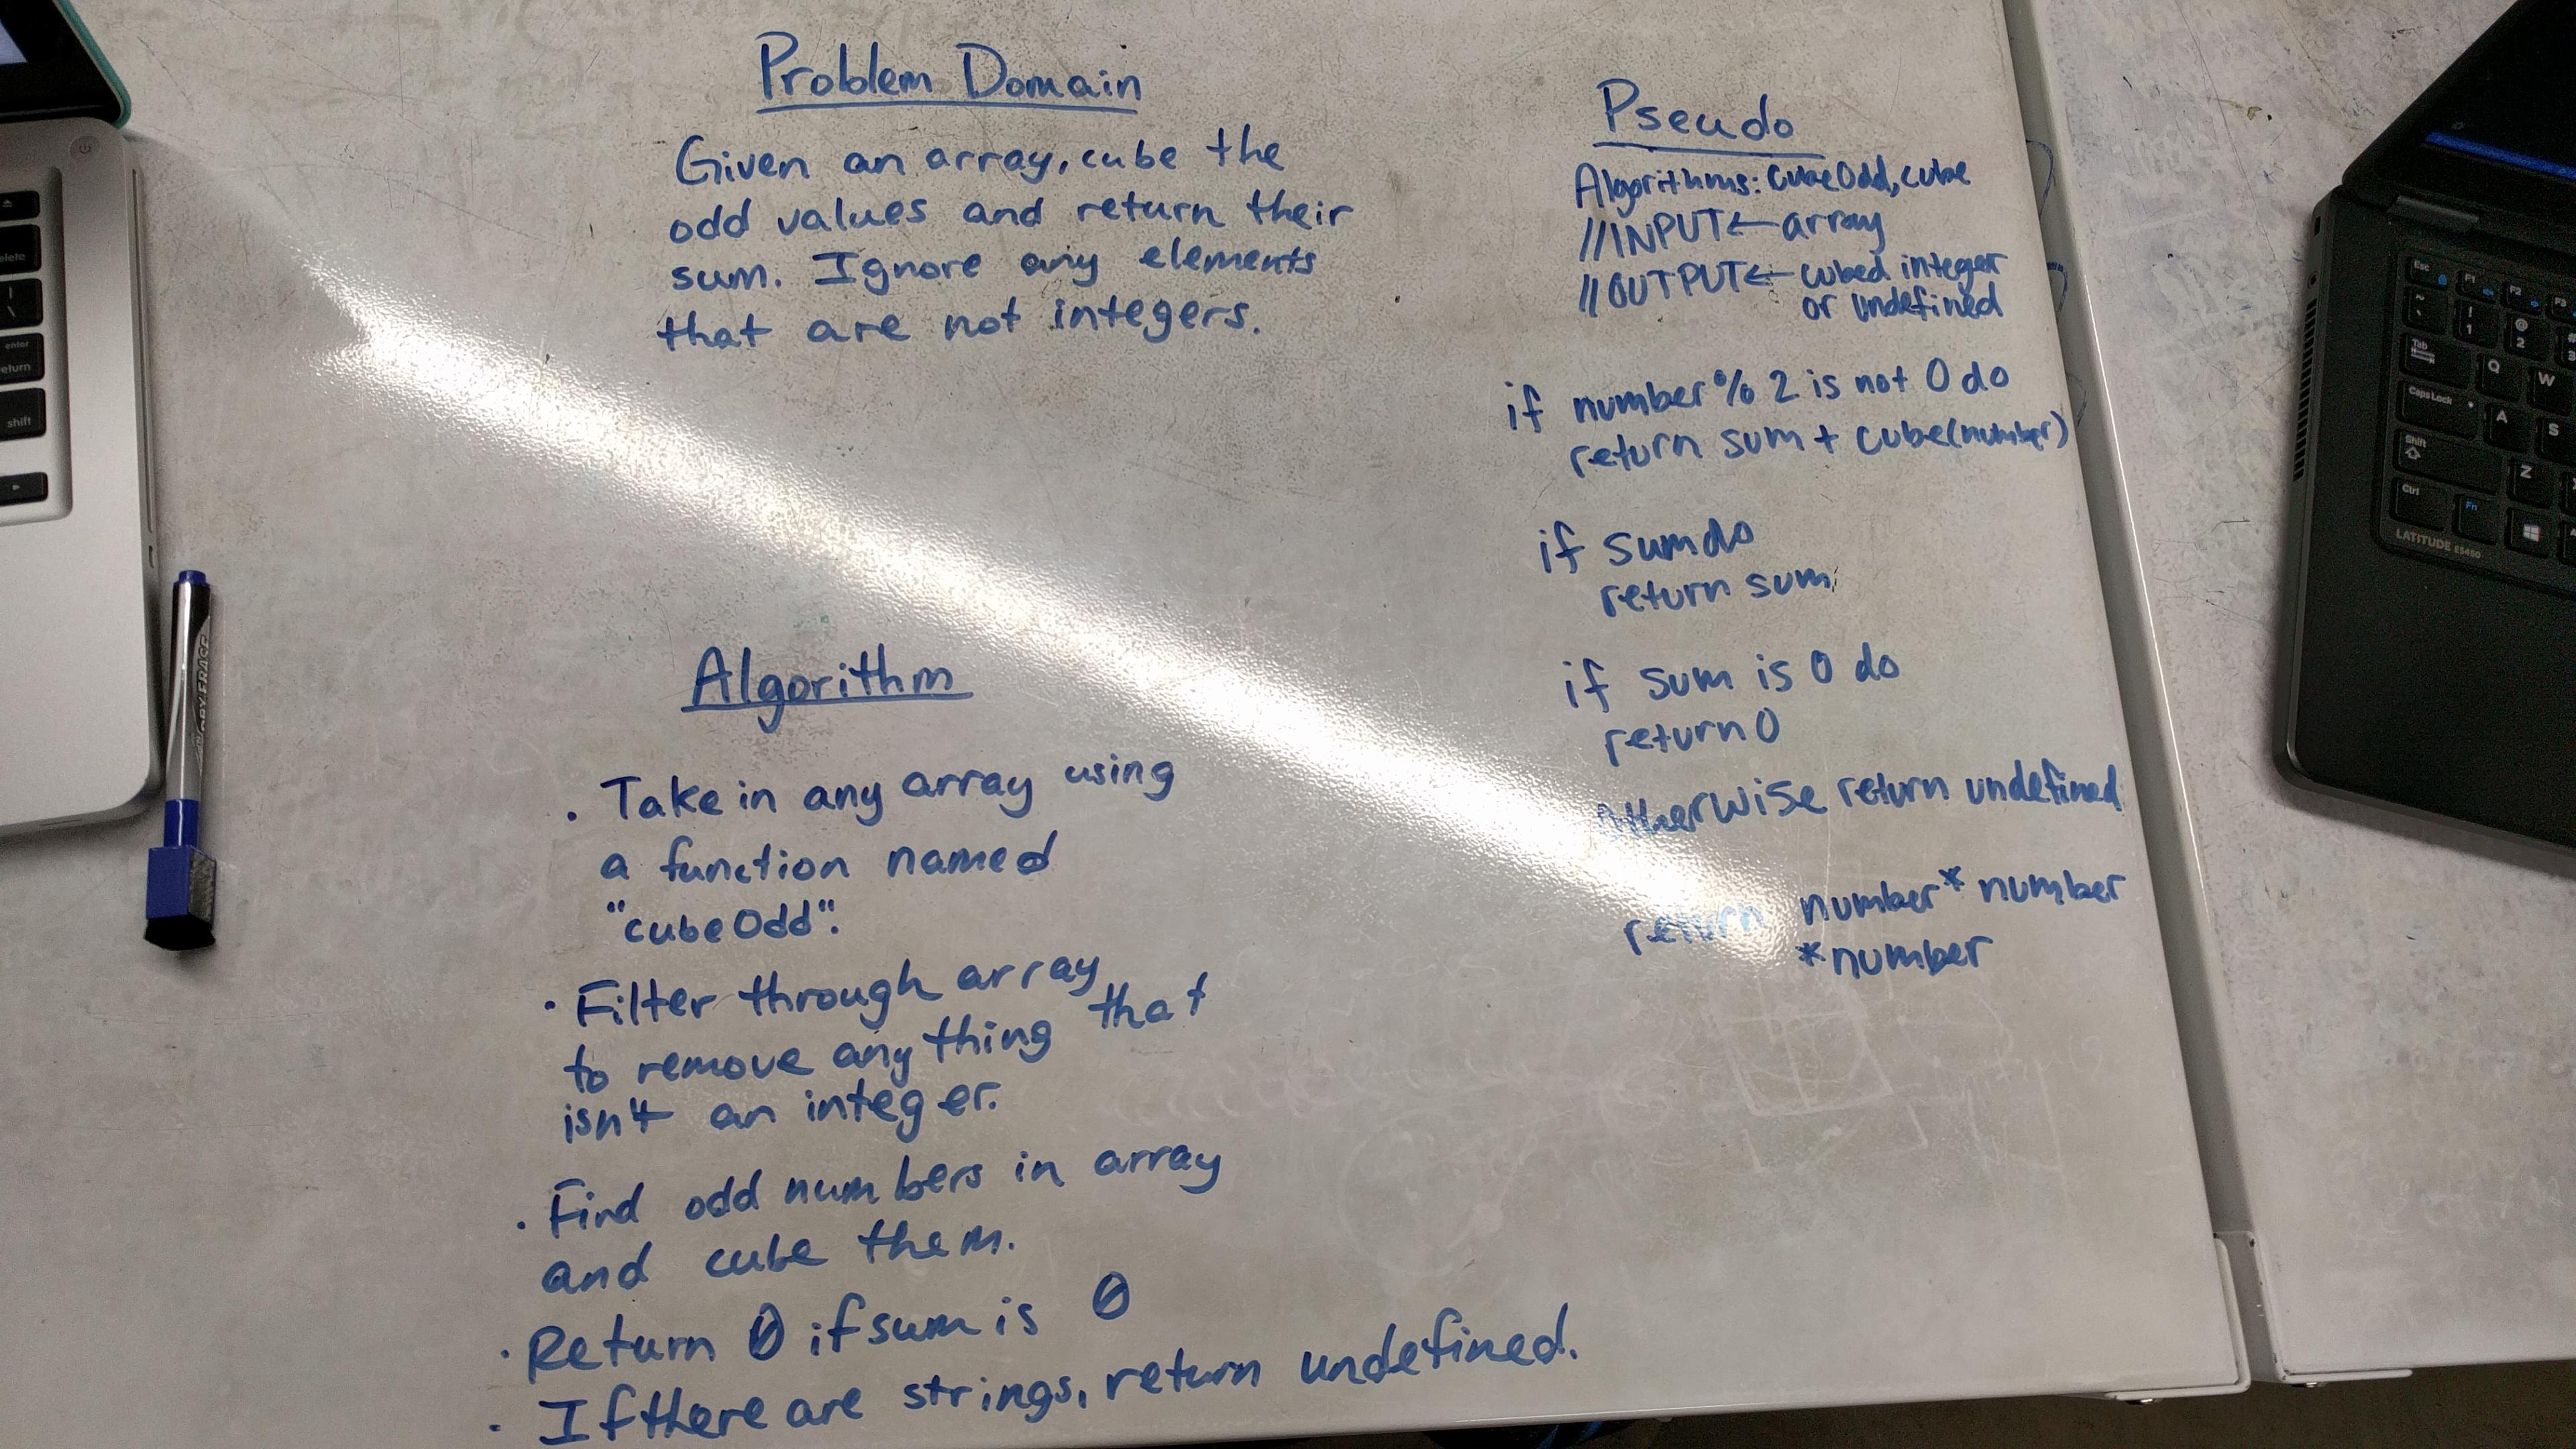 Problem Domain
Given an array, cube the
odd values and return their
sum. Ignore any elements
that are not integers.
Algorithm
. Take in any array using
a function named
"cubeOdd".
· Filter through array
to remove anything that
isn't an integer.
· Find odd numbers in array
and cube them.
· Return 0 if sum is 0
· If there are strings, return undefined.
Pseudo
Algorithms: cubeOdd, cube
//INPUT ← array
//OUTPUT ← cubed integer
or undefined
if number % 2 is not 0 do
return sum + cube(number)
if sum do
return sum
if sum is 0 do
return 0
otherwise return undefined
return number * number
* number
DRY ERASE
elete
enter
return
shift
Esc F1 F2 F3
~ ! 1 @ 2 # 3
Tab Q W
Caps Lock A S
Shift Z
Ctrl Fn
LATITUDE E5450